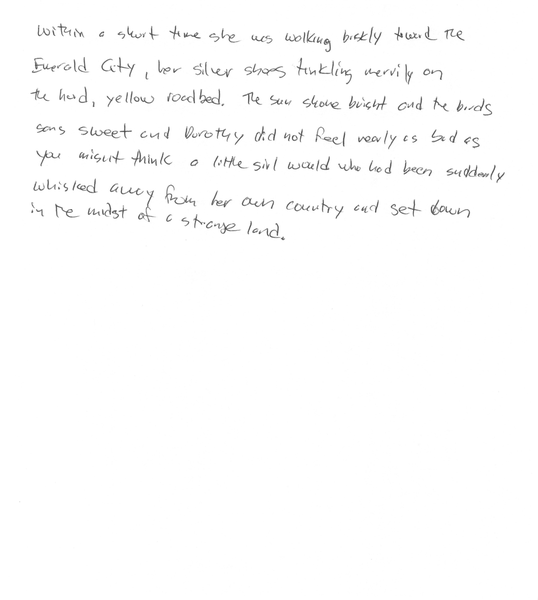 Within a short time she was walking briskly toward the
Emerald City, her silver shoes tinkling merrily on
the hard, yellow roadbed. The sun shone bright and the birds
sang sweet and Dorothy did not feel nearly as bad as
you might think a little girl would who had been suddenly
whisked away from her own country and set down
in the midst of a strange land.